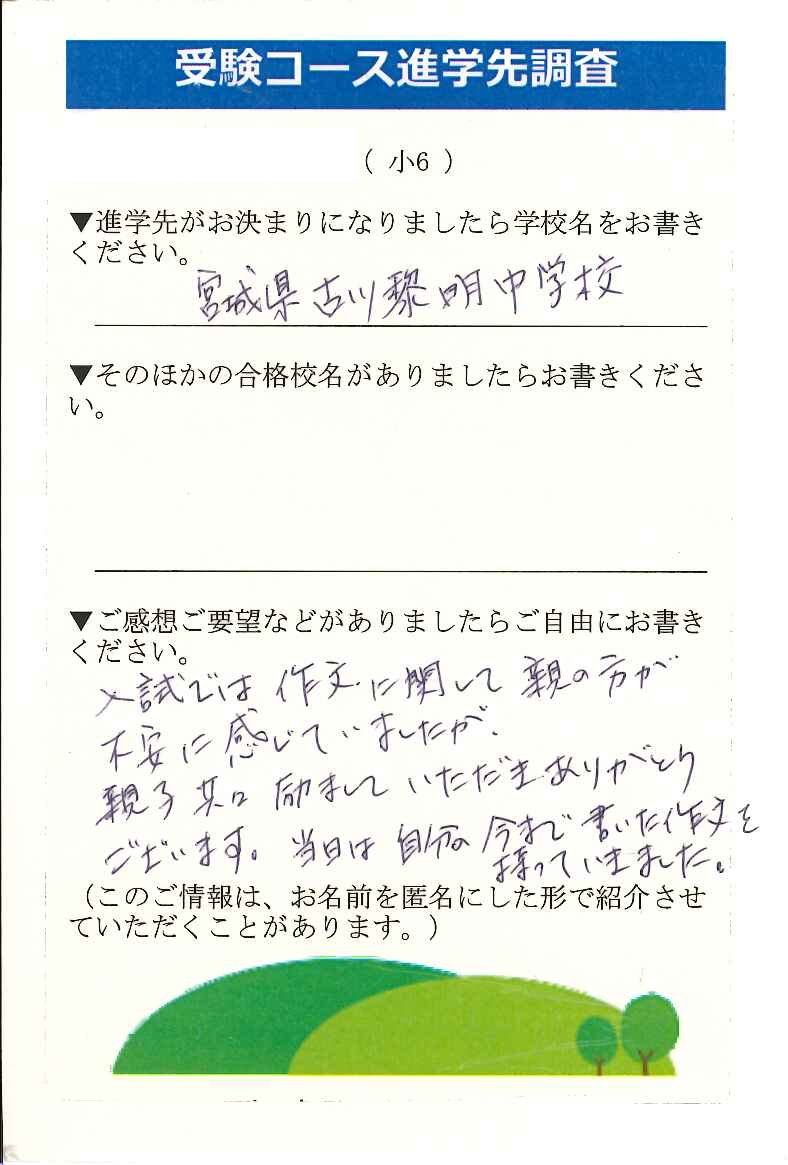 受験コース進学先調査
( 小6 )
▼進学先がお決まりになりましたら学校名をお書き
ください。
宮城県古川黎明中学校
▼そのほかの合格校名がありましたらお書きくださ
い。
▼ご感想ご要望などがありましたらご自由にお書き
ください。
入試では作文に関して親の方が
不安に感じていましたが、
親子共に励ましていただきありがとう
ございます。当日は自分の今まで書いた作文を
持っていきました。
（このご情報は、お名前を匿名にした形で紹介させ
ていただくことがあります。）